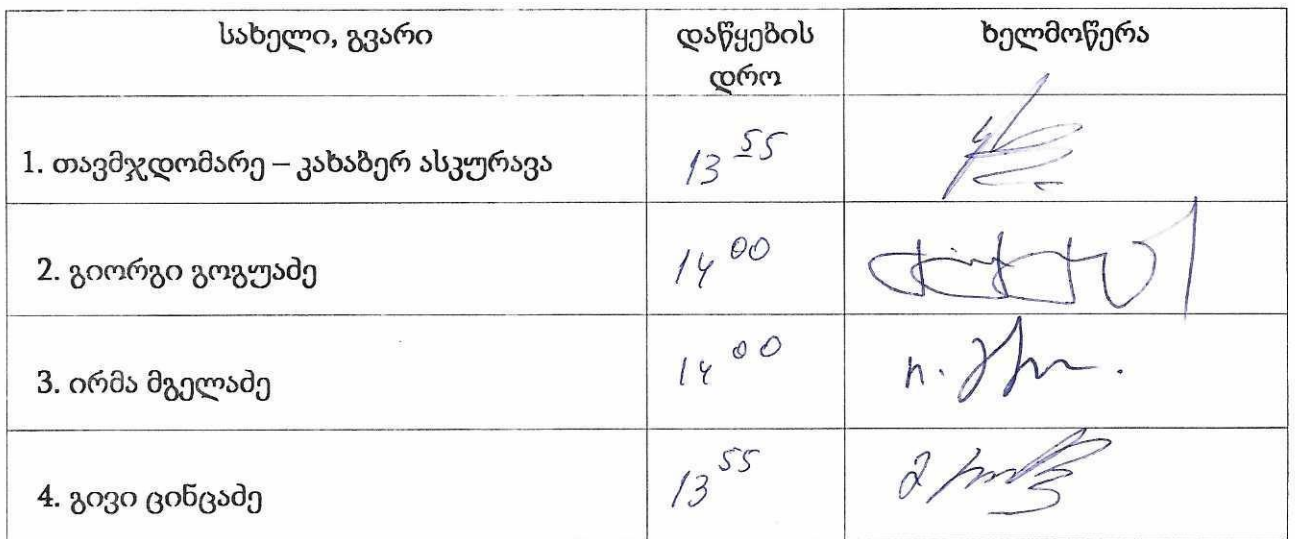 სახელი, გვარი
დაწყების
დრო
ხელმოწერა
1. თავმჯდომარე – კახაბერ ასკურავა
13 55
2. გიორგი გოგუაძე
14 00
3. ირმა მგელაძე
14 00
4. გივი ცინცაძე
13 55